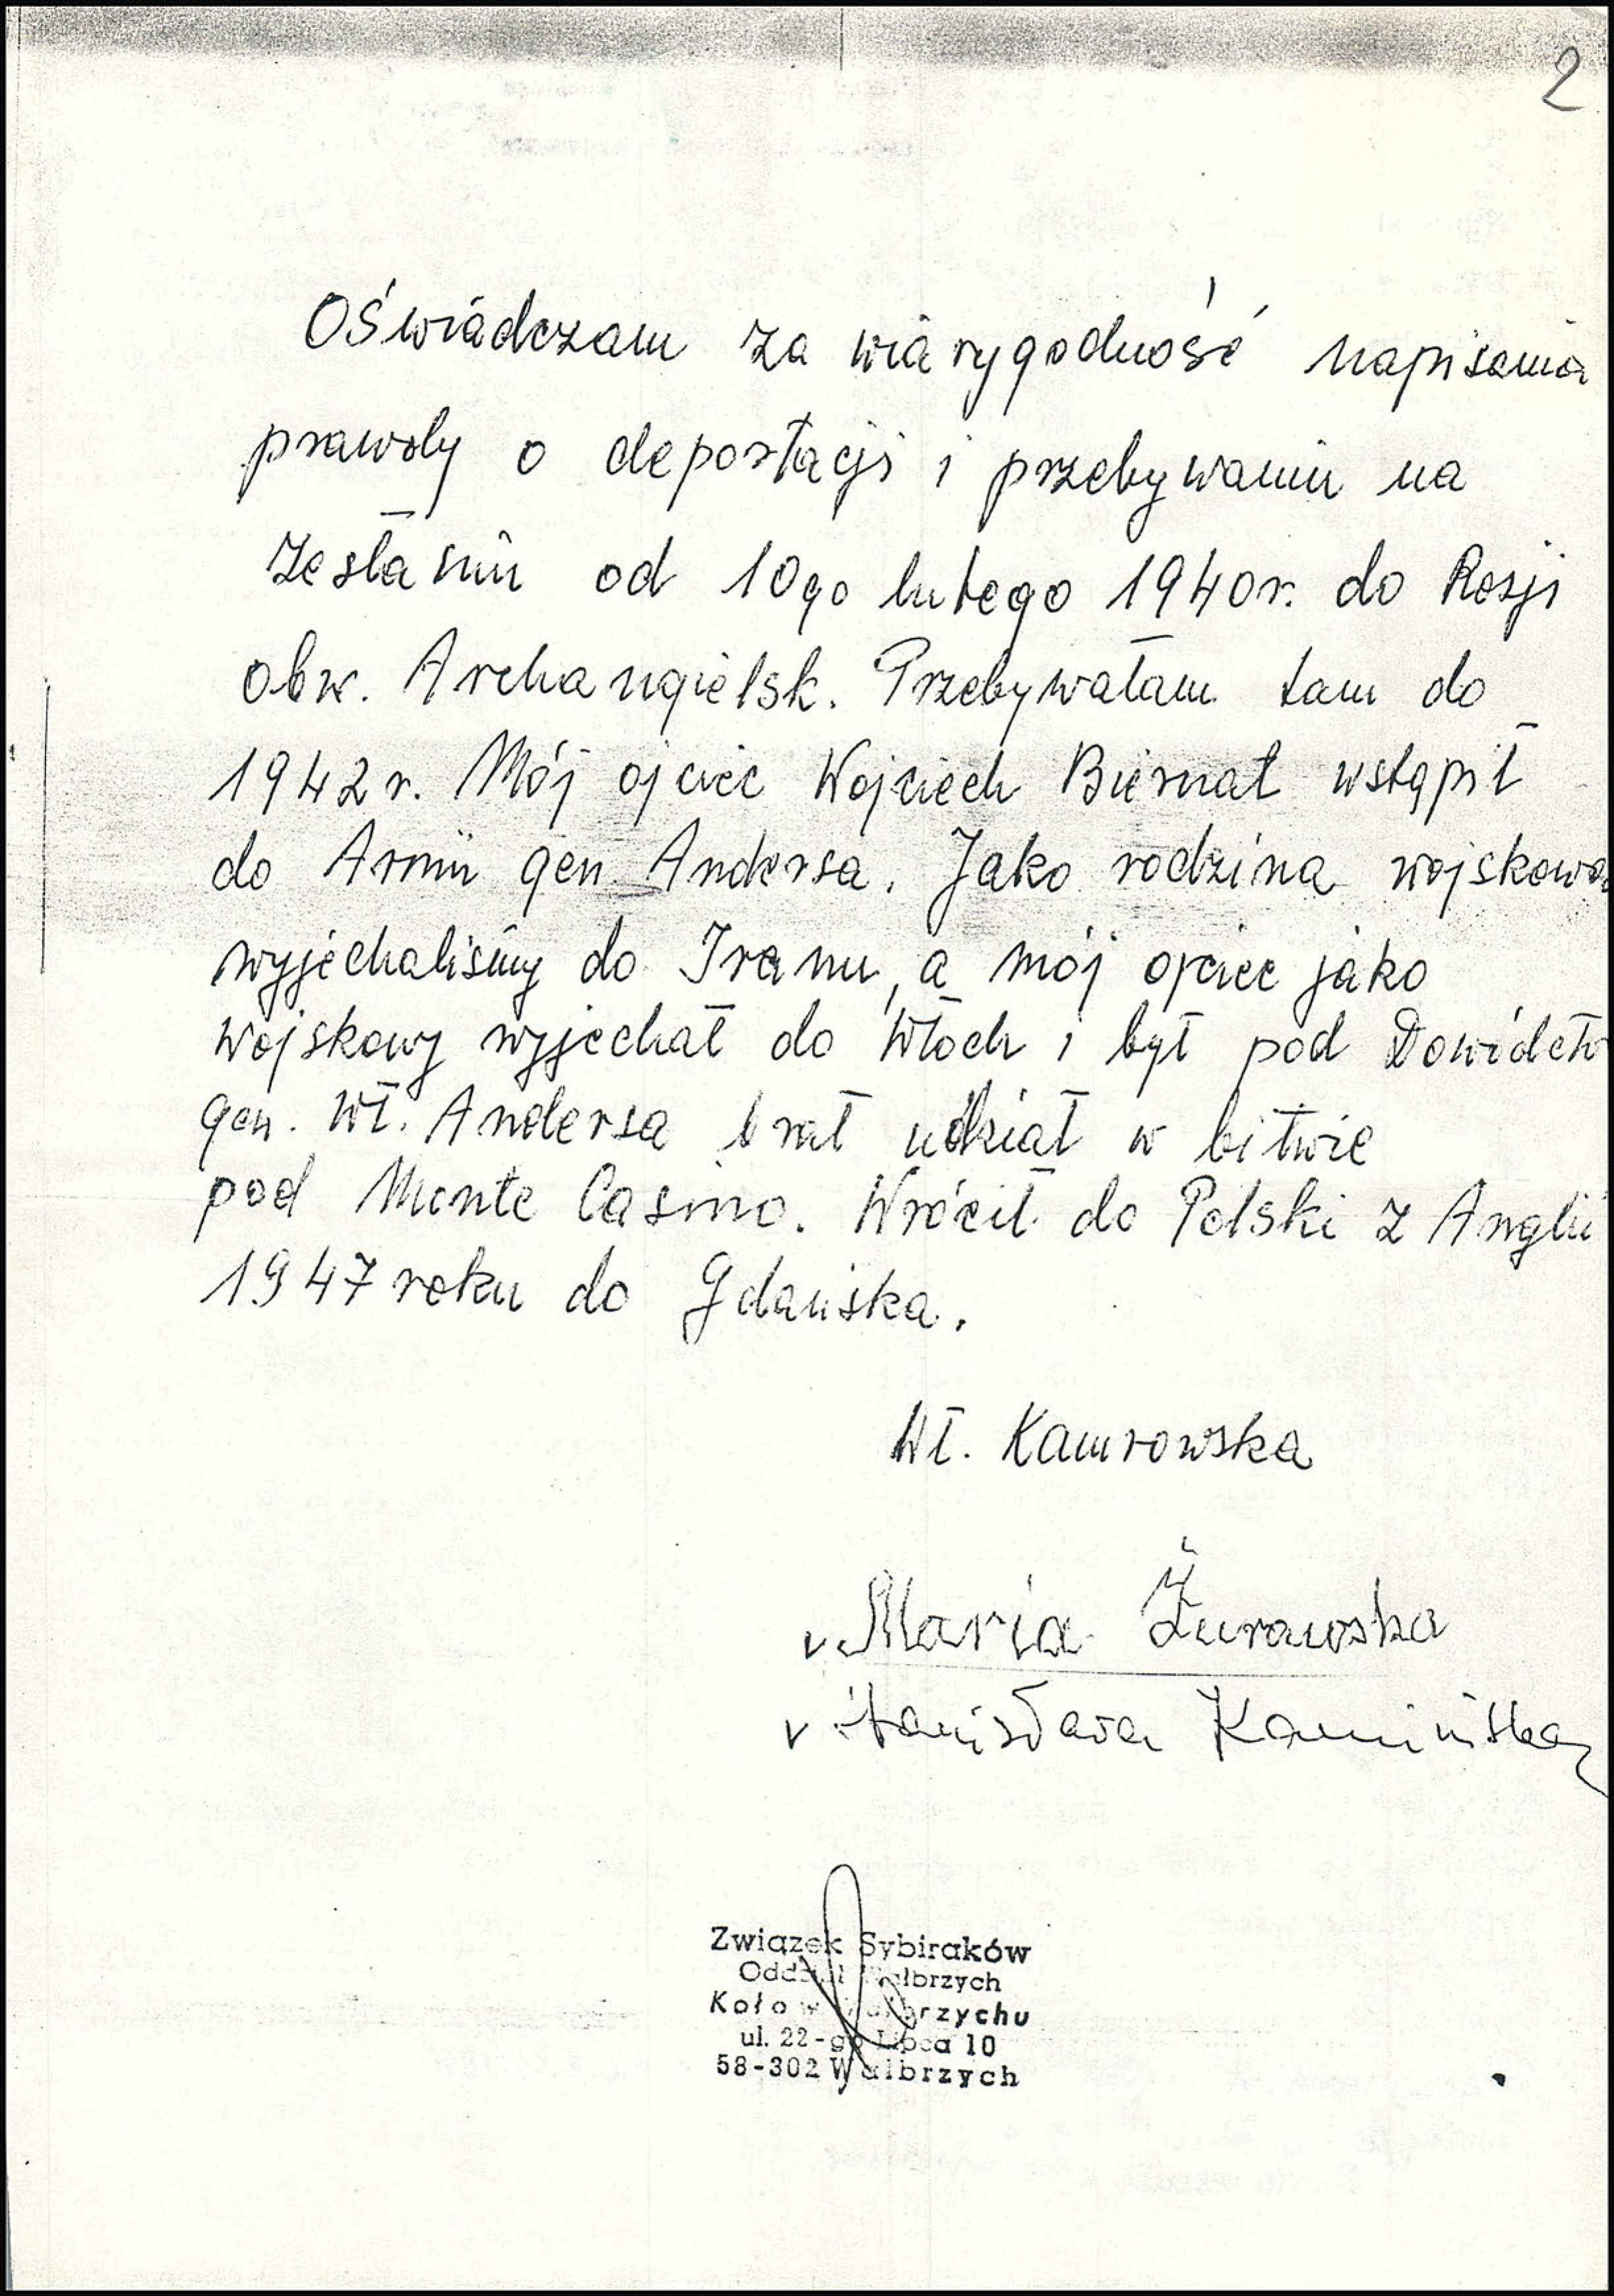 2
Oświadczam za wiarygodność napisania
prawdy o deportacji i przebywaniu na
zesłaniu od 10go lutego 1940r. do Rosji
obw. Archangielsk. Przebywałam tam do
1942r. Mój ojciec Wojciech Biernat wstąpił
do Armii gen. Andersa. Jako rodzina wojskowa
wyjechaliśmy do Iranu, a mój ojciec jako
wojskowy wyjechał do Włoch i był pod Dowództw
gen. Wł. Andersa brał udział w bitwie
pod Monte Casino. Wrócił do Polski z Anglii
1947 roku do Gdańska.
Wł. Kamrowska
v Maria Żurawska
v Stanisława Kamińska
Związek Sybiraków
Oddział Wałbrzych
Koło w Wałbrzychu
ul. 22-go Lipca 10
58-302 Wałbrzych